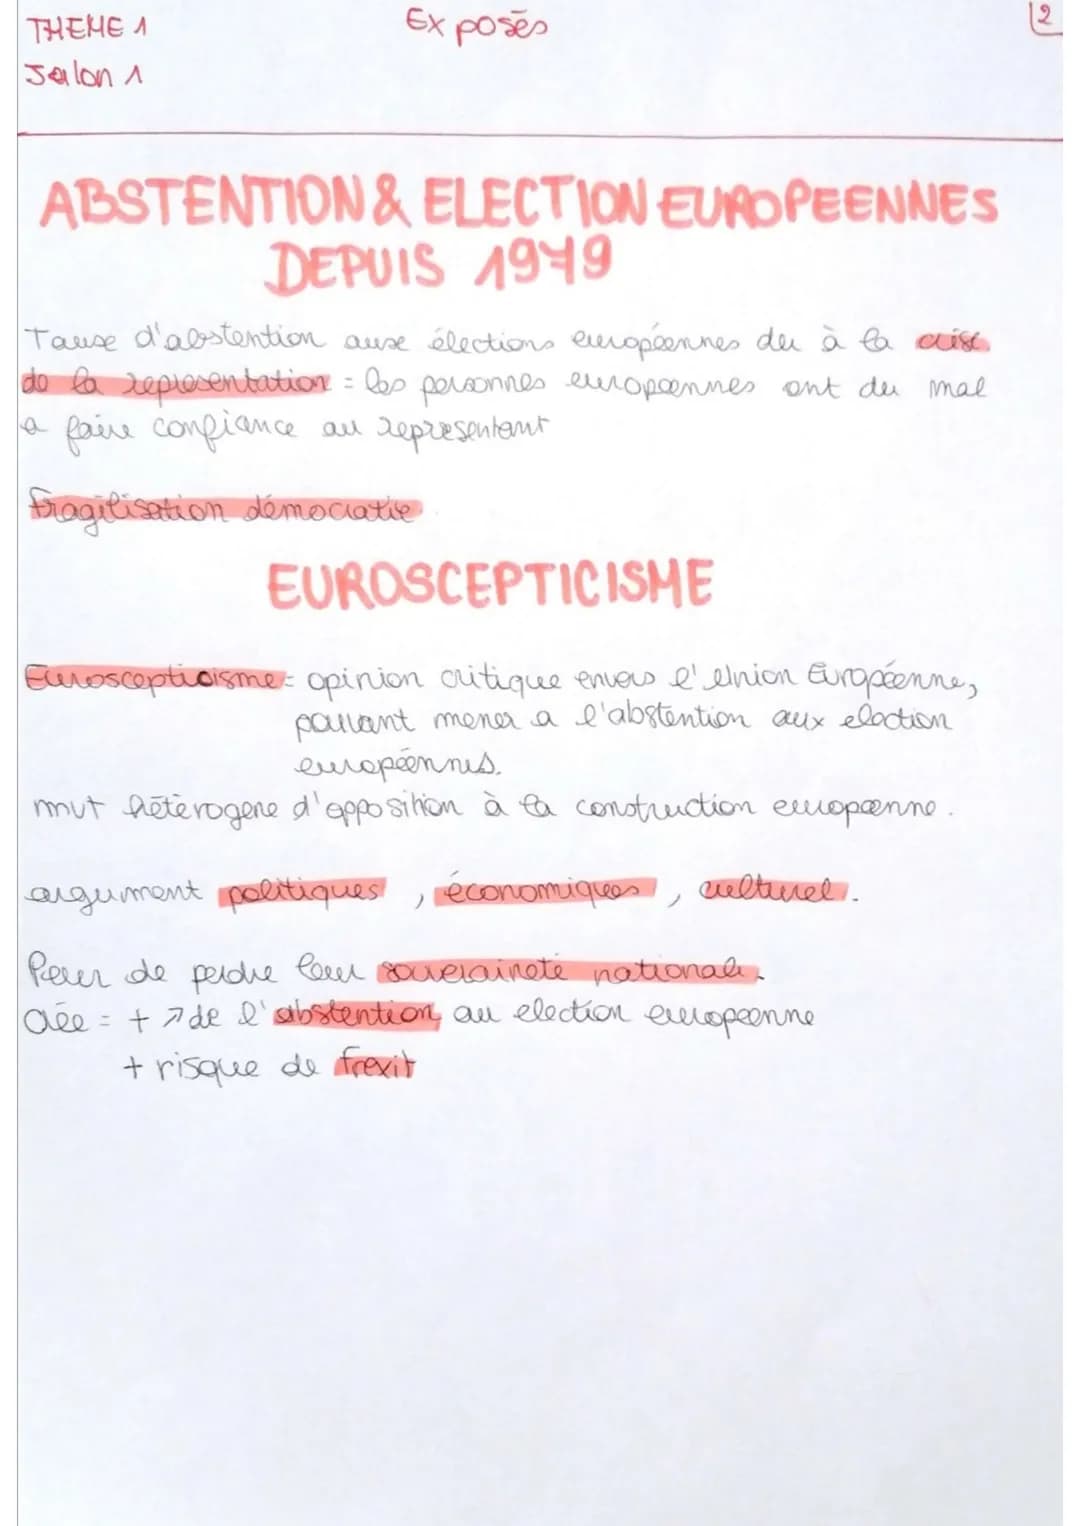 THEME 1
Exposés
12
Jalon 1
ABSTENTION & ELECTION EUROPEENNES
DEPUIS 1979
Taux d'abstention aux élections européennes du à la crise
de la representation = les personnes europeennes ont du mal
a faire confiance au representant
fragilisation démocratie
EUROSCEPTICISME
Euroscepticisme = opinion critique envers l'Union Européenne,
pouvant mener a l'abstention aux election
européennes.
mvt hétèrogene d'opposition à la construction europeenne.
argument politiques, économiques, culturel.
Peur de perdre leur souveraineté nationale.
Crée = + ↗ de l'abstention au election europeenne
+ risque de frexit